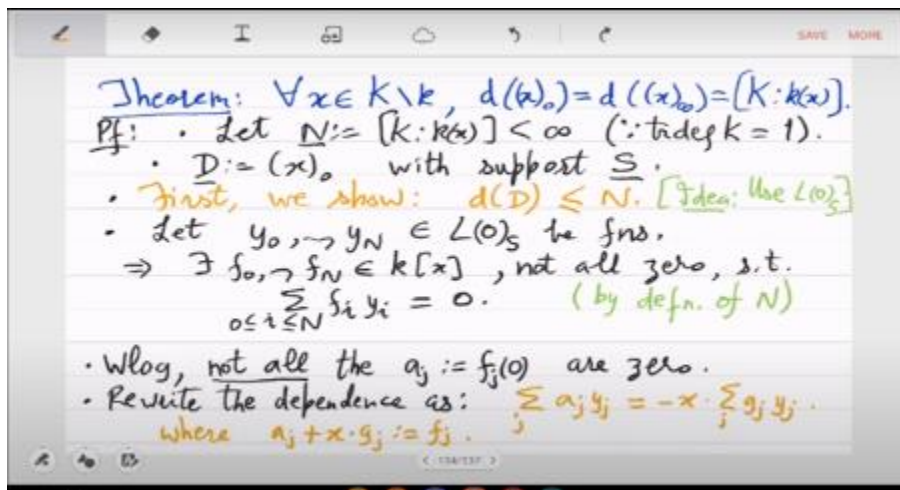 SAVE MORE
Theorem: ∀ x ∈ K\k, d((x)₀) = d((x)_∞) = [K:k(x)].
Pf: • Let N := [K:k(x)] < ∞ (∵ trdeg K = 1).
• D := (x)₀ with support S.
• First, we show: d(D) ≤ N. [Idea: Use L(0)_S]
• Let y₀,⤳ y_N ∈ L(0)_S be fns.
⇒ ∃ f₀,⤳ f_N ∈ k[x], not all zero, s.t.
∑_{0≤i≤N} f_i y_i = 0. (by defn. of N)
• Wlog, not all the a_j := f_j(0) are zero.
• Rewrite the dependence as: ∑_j a_j y_j = -x · ∑_j g_j y_j.
where a_j + x·g_j := f_j.